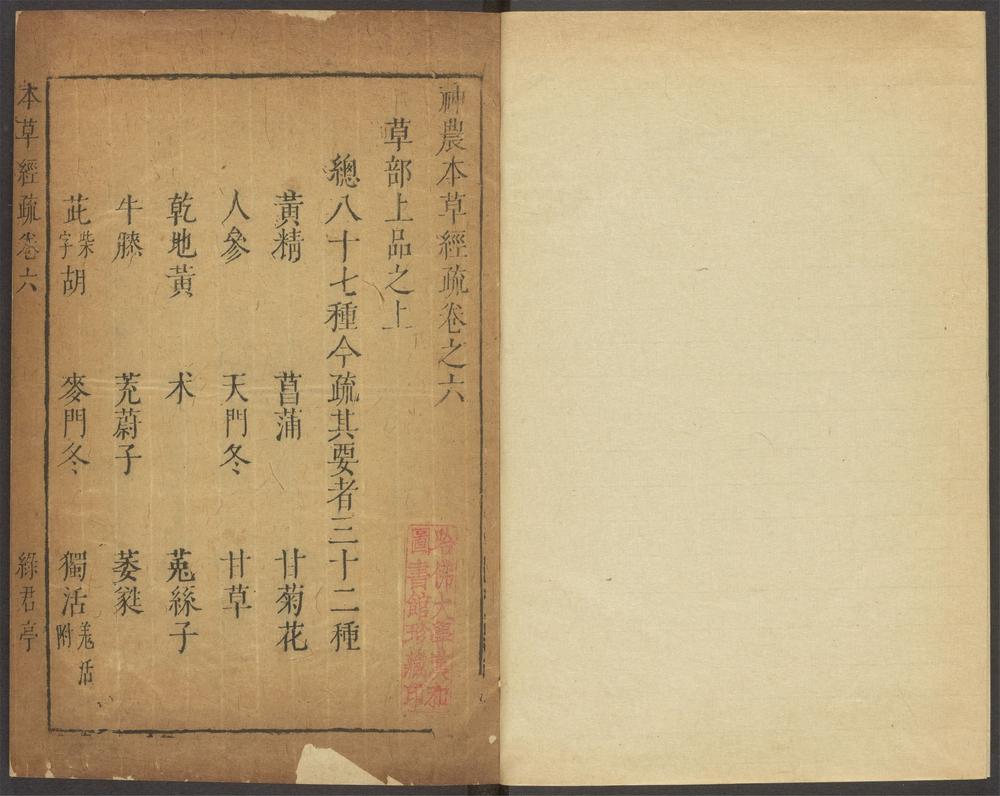 神農本草經疏卷之六
草部上品之上
總八十七種今疏其要者三十二種
黃精 菖蒲 甘菊花
人參 天門冬 甘草
乾地黃 术 菟絲子
牛膝 茺蔚子 萎蕤
茈柴字胡 麥門冬 獨活羌活附
本草經疏 卷六 綠君亭
哈佛大學漢和圖書館珍藏印